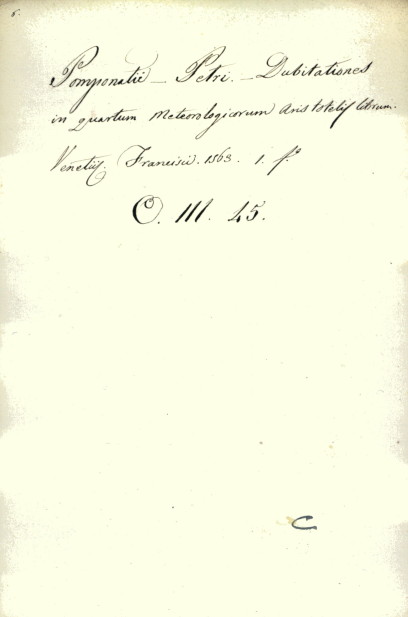 6.
Pomponatii – Petri. – Dubitationes
in quartum Meteorologicorum Aristotelis librum.
Venetiis. Francisii. 1563. 1. f.º
O. III. 45.
C